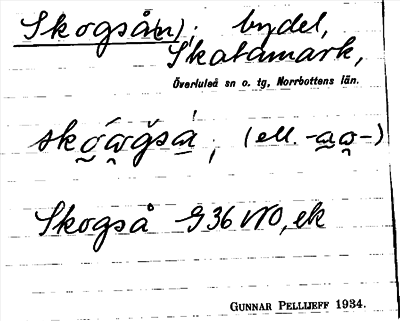 Skogså(n); bydel,
Skatamark,
Överluleå sn o. tg, Norrbottens län.
(ell.
Skogså G 36 NO, ek
GUNNAR PELLIJEFF 1934.